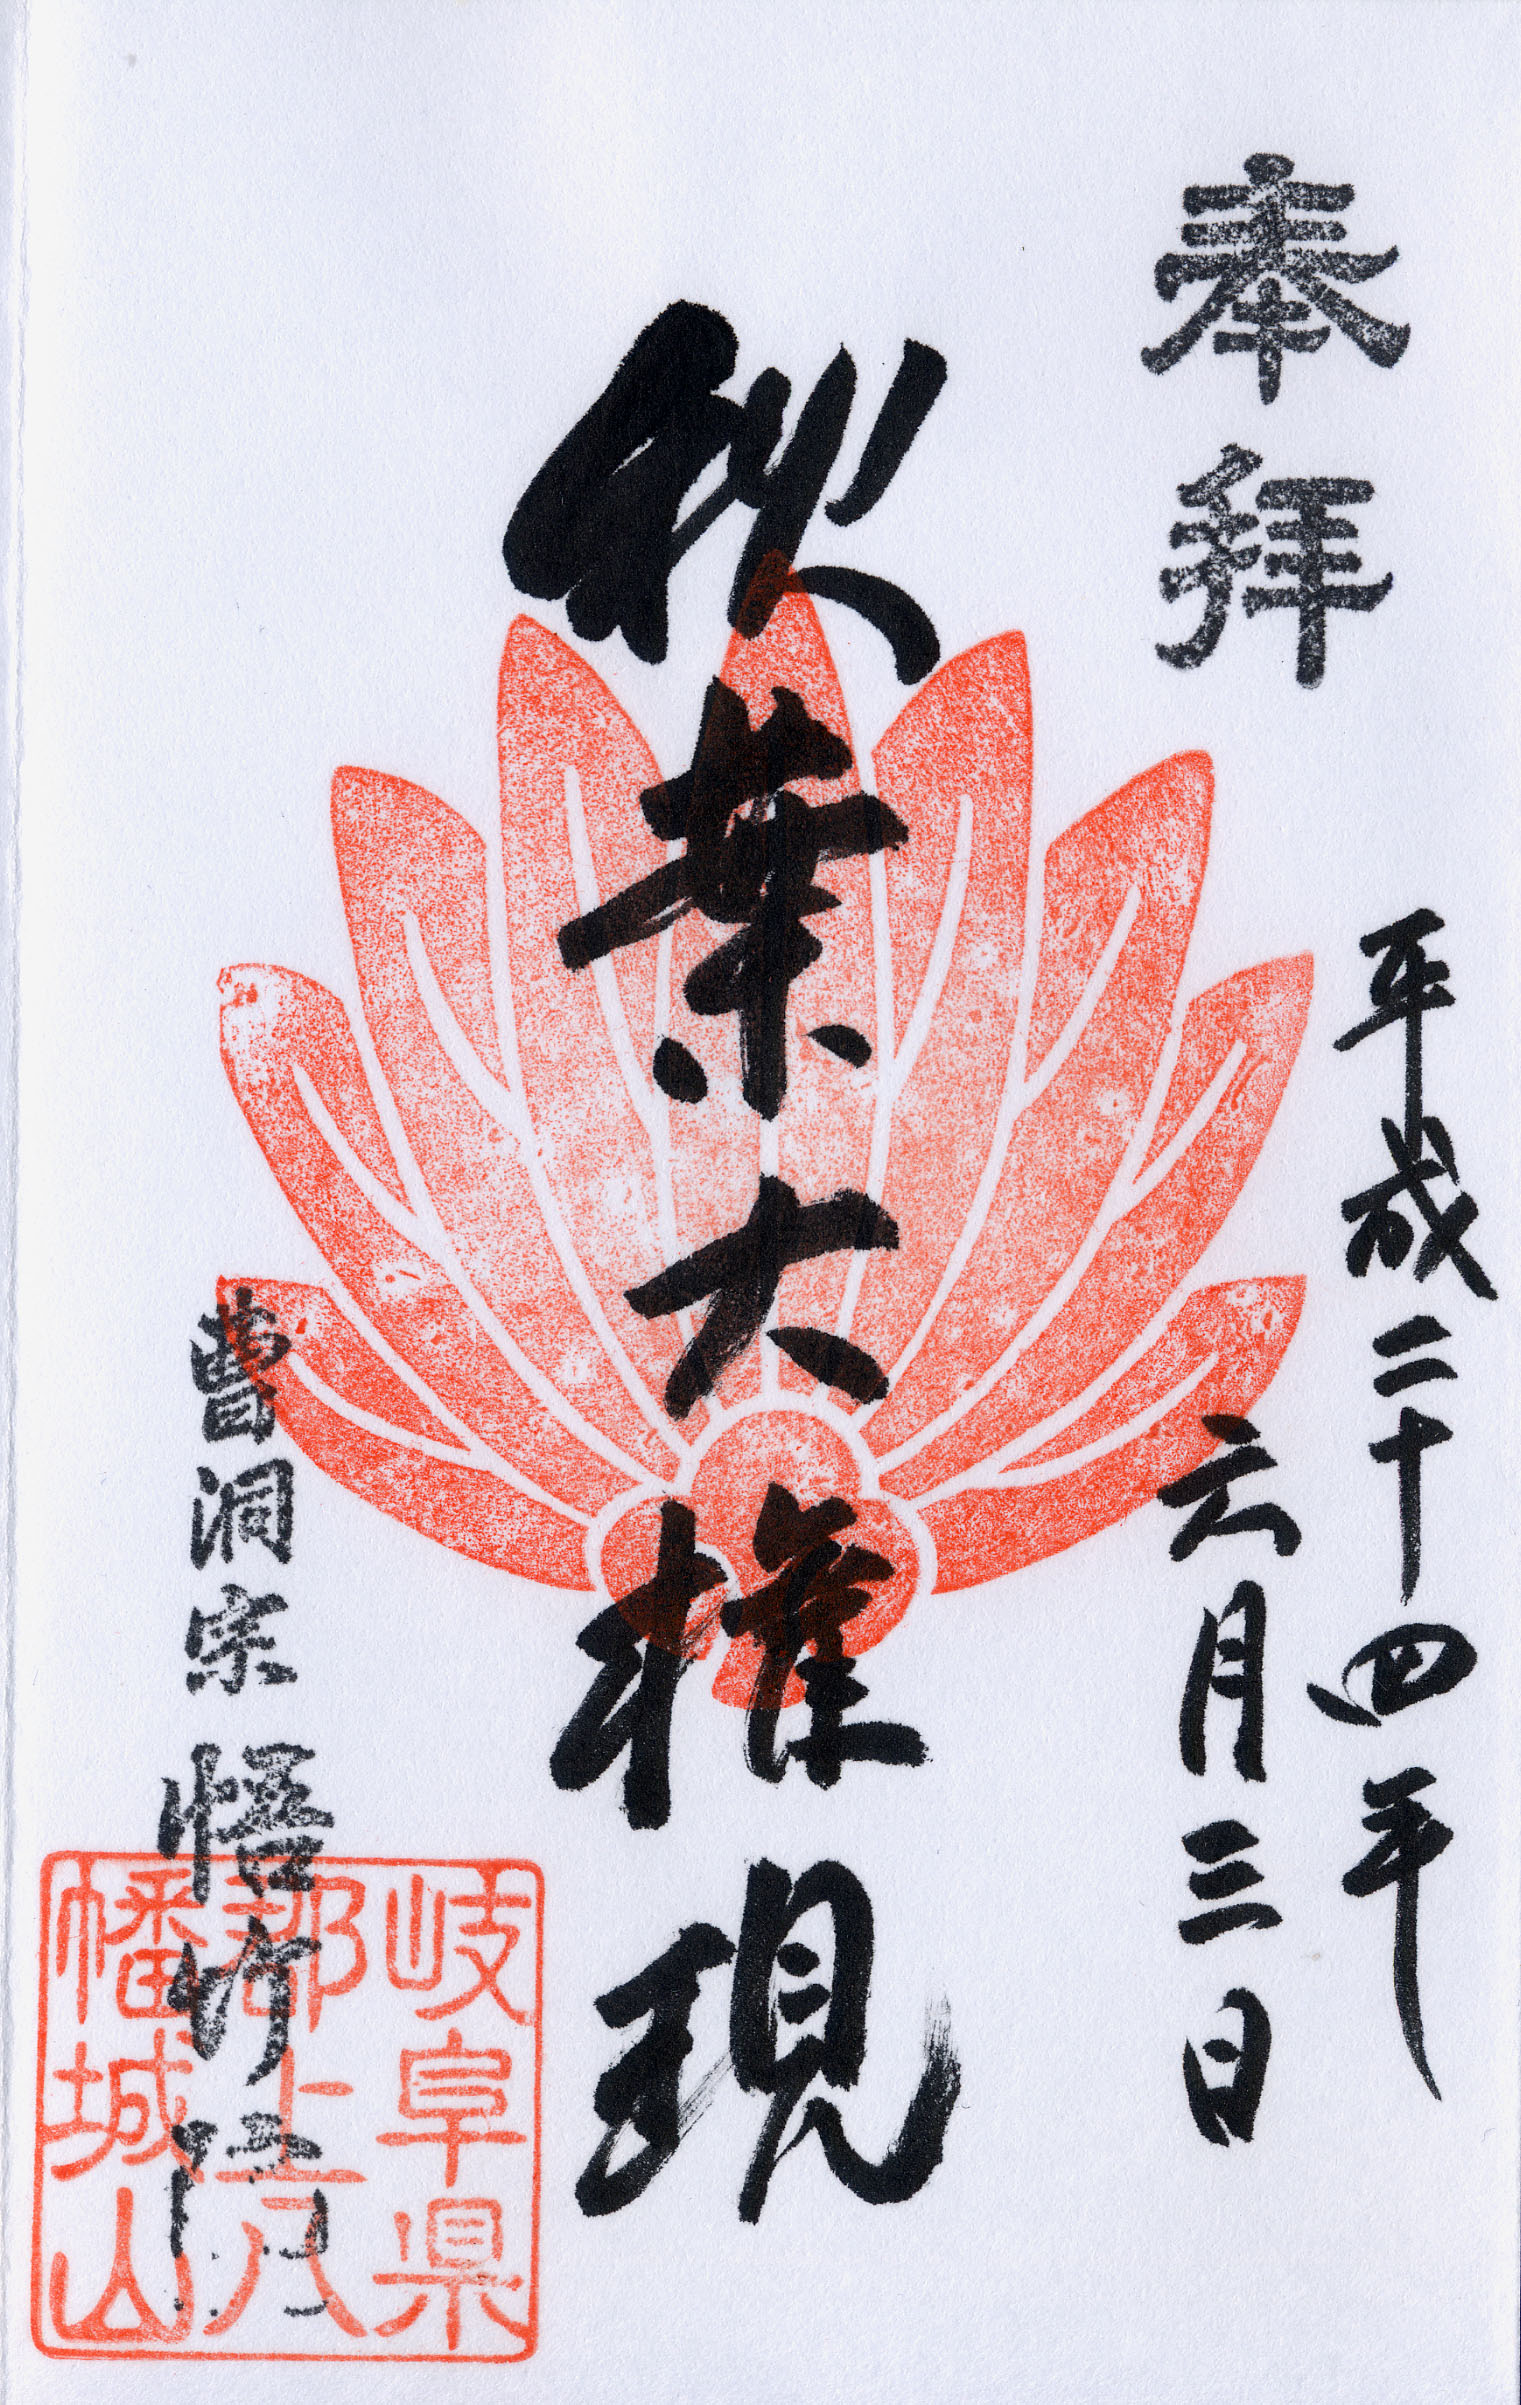 奉拝
平成二十四年
六月三日
秋葉大権現
曹洞宗 悟竹院
岐阜県
郡上八
幡城山